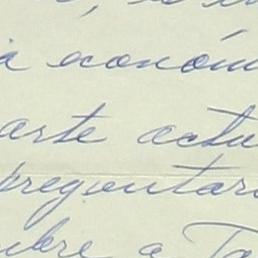 a económi
arte actu
pregontar
mbre a Ta